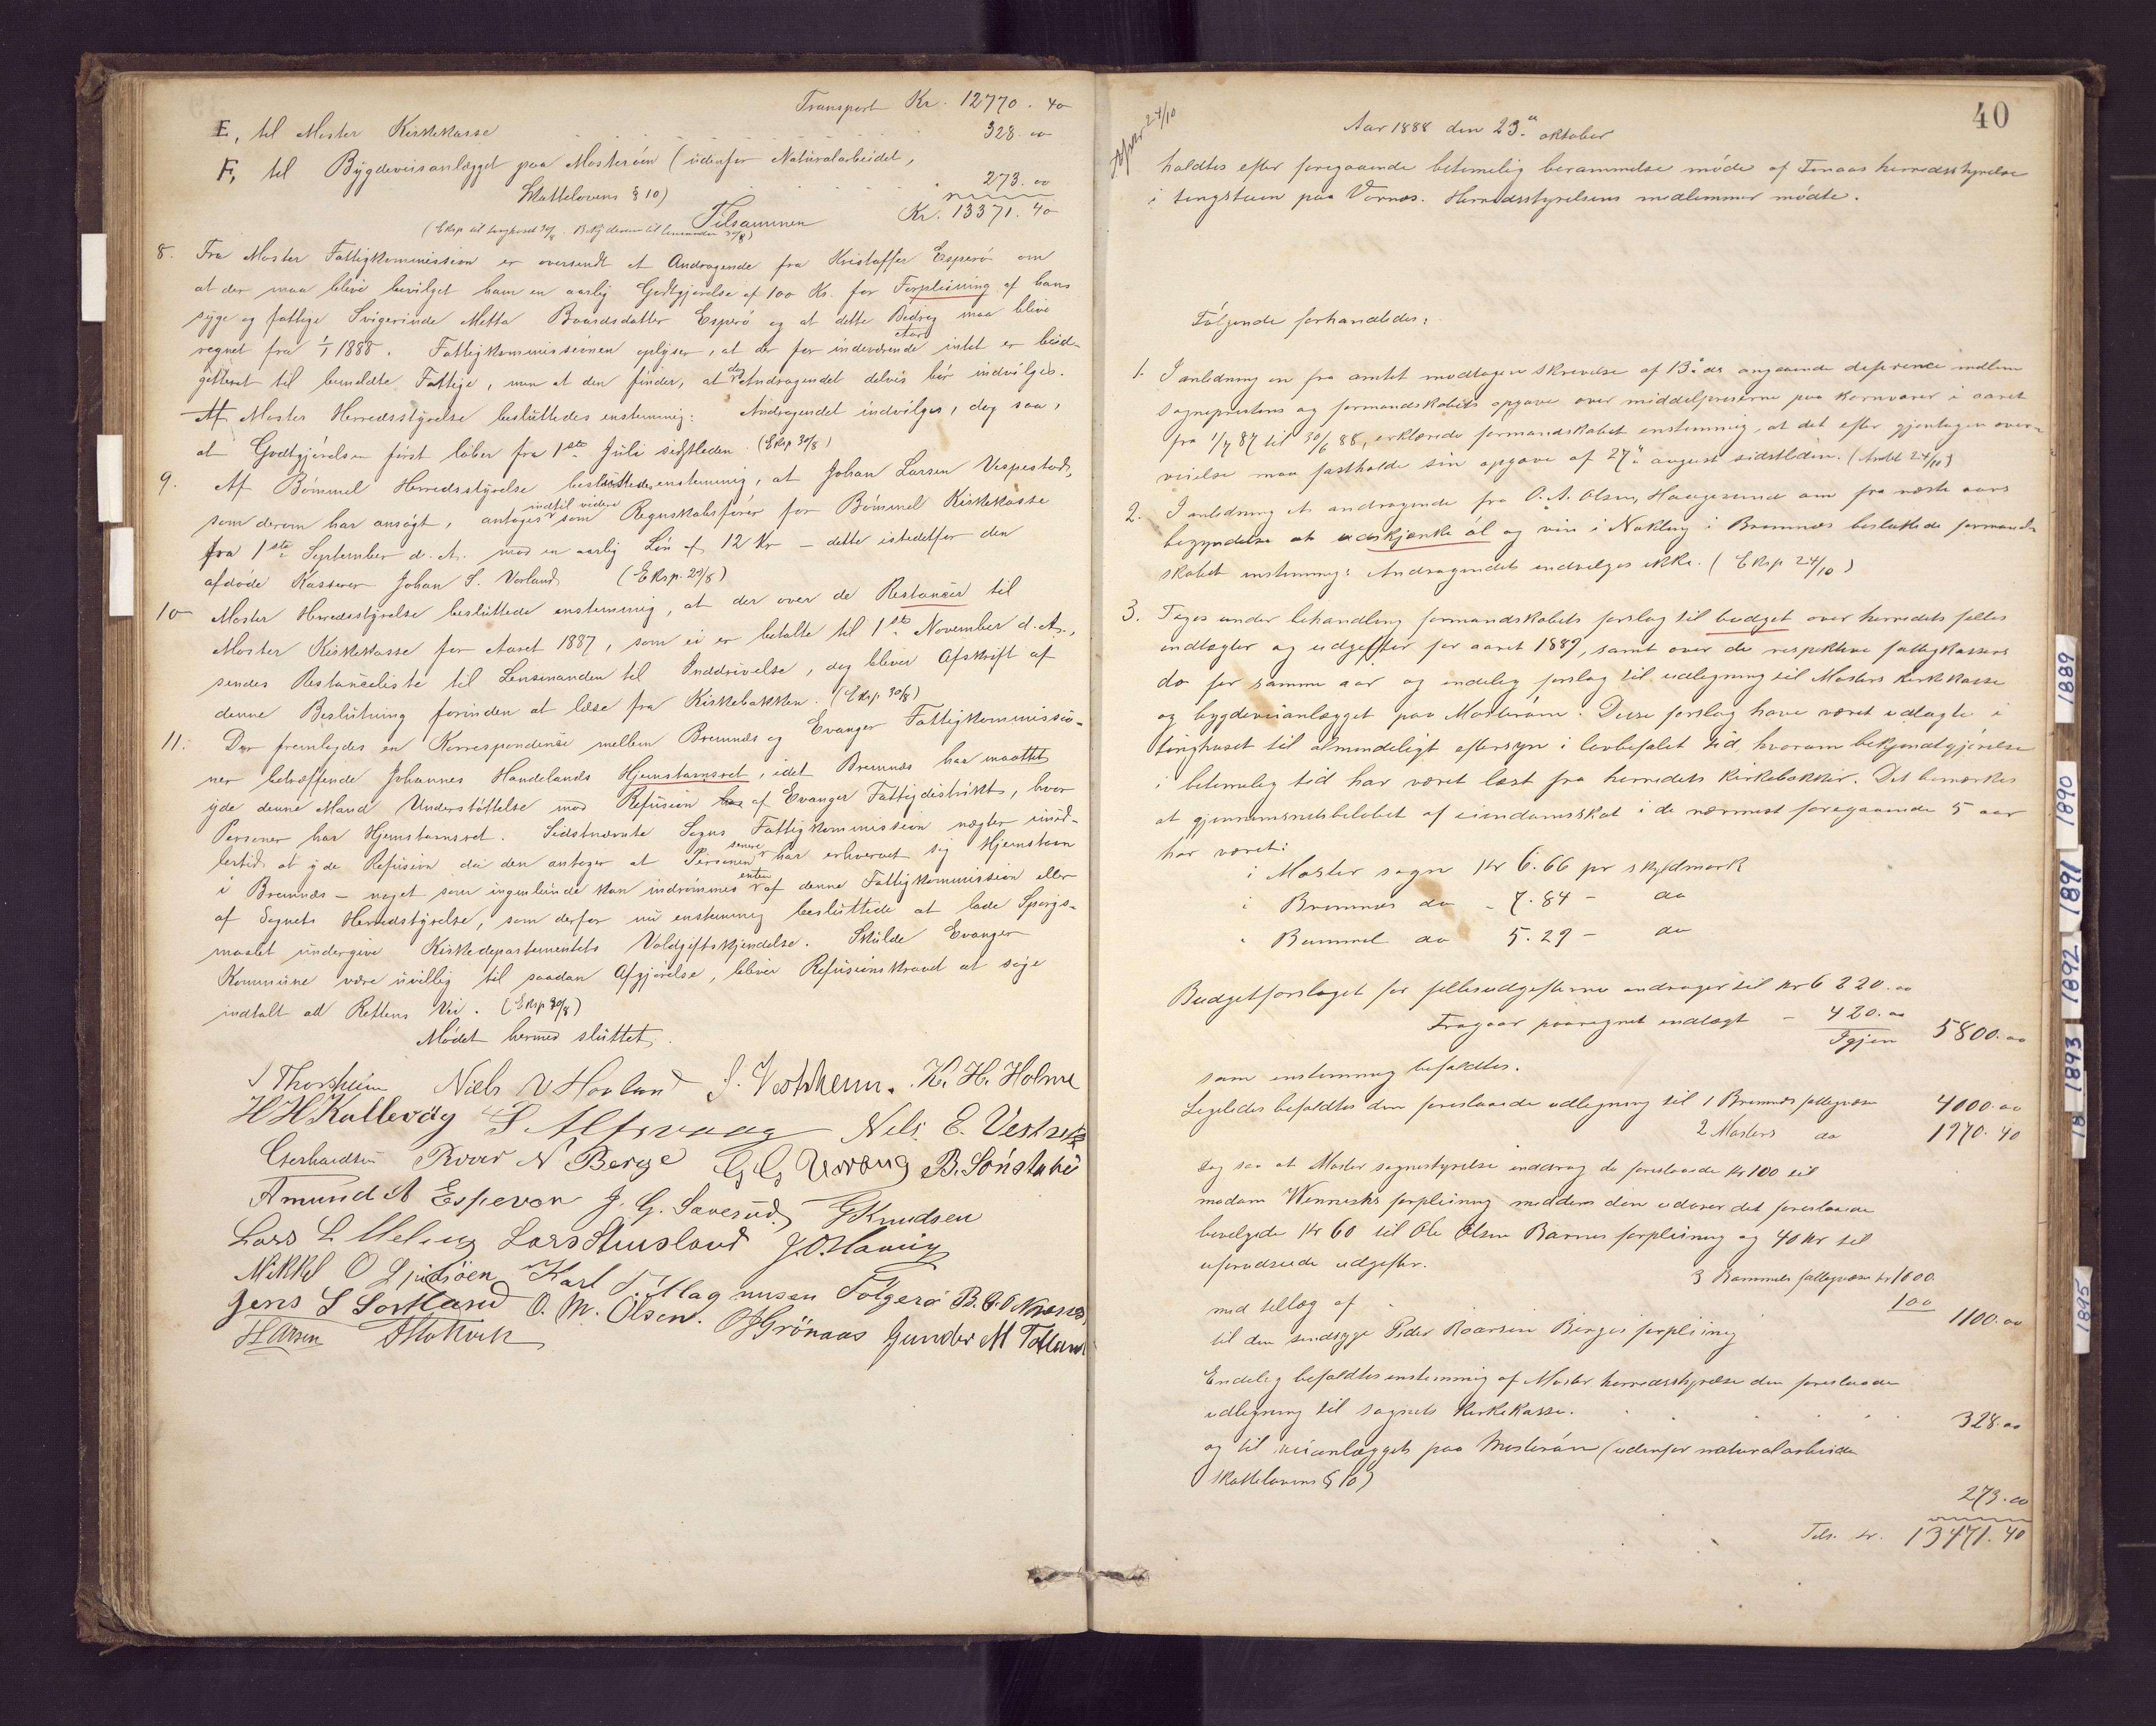 Transport Kr. 12770. 40
E, til Moster Kirkekasse 328. 00
F, til Bygdeveisanlægget paa Mosterøen (udenfor Naturalarbeidet,
Skattelovens § 10) 273. 00
Tilsammen Kr. 13371. 40
8. Fra Moster Fattigkommission er oversendt et Andragende fra Kristoffer Esperø om
at der maa blive bevilget ham en aarlig Godtgjørelse af 100 Kr. for Forpleining af hans
syge og fattige Svigerinde Metta Baardsdatter Esperø og at dette Bedrag maa blive
regnet fra 1/1 1888. Fattigkommissionen oplyser, at der for indeværende Aar intet er bud-
getteret til bemeldte Fattige, men at den finder, at dog Andragendet delvis bør indvilges.
Af Moster Herredsstyrelse besluttedes enstemmig: Andragendet indvilges, dog saa,
at Godtgjørelsen først løber fra 1ste Juli sidstleden. (Eksp 30/8)
9. Af Bømmel Herredsstyrelse besluttedes enstemmig, at Johan Larsen Vespestad,
som derom har ansøgt, antages indtil videre som Regnskabsfører for Bømmel Kirkekasse
fra 1ste September d. A. mod en aarlig Løn af 12 Kr – dette istedetfor den
afdøde Kasserer Johan S. Vorland (Eksp. 29/8)
10 Moster Herredsstyrelse besluttede enstemmig, at der over de Restancer til
Moster Kirkekasse for Aaret 1887, som ei er betalte til 1ste November d. A.,
sendes Restanceliste til Lensmanden til Inddrivelse, dog bliver Afskrift af
denne Beslutning forinden at læse fra Kirkebakken. (Eksp. 30/8)
11. Der fremlagdes en Korrespondence mellem Bremnes og Evanger Fattigkommissio-
ner betræffende Johannes Handelands Hjemstavnsret, idet Bremnes har maattet
yde denne Mand Understøttelse mod Refusion af Evanger Fattigdistrikt, hvor
Personer har Hjemstavnsret. Sidstnævnte Sogns Fattigkommission nægter imid-
lertid at yde Refusion da den antager at Personen senere har erhvervet sig Hjemstavn
i Bremnes – noget som ingenlunde kan indrømmes enten af denne Fattigkommission eller
af Sognets Herredstyrelse, som derfor nu enstemmig besluttede at lade Spørgs-
maalet undergive Kirkedepartementets Voldgiftskjendelse. Skulde Evanger
Kommune være uvillig til saadan Afgjørelse, bliver Refusionskravet at søge
indtalt ad Rettens Vei. (Eksp 30/8)
Mødet hermed sluttet.
Thorsheim Niels V Hovland J. Vestrheim. K. H. Holme
H H Kallevåg S Alfsvaag Nils E. Vestre
Gerhardsen Roar N Berge B. Sønstabø
Amund A Espever J. G. Savesud G Knudsen
Lars L Meling Lars Ausland J O Hauug
Mikkel O Gjulsjøen Karl T. Magnusen Følgerø B. O
Jens S Sortland O. M. Olsen. Grönaas Gunder M Totland
40
Aar 1888 den 23. oktober
holdtes efter foregaaende betimelig berammelse møde af Finaas herredsstyrelse
i tingstuen paa Vornes. Herredsstyrelsens medlemmer mødte.
Følgende forhandledes:
1. I anledning en fra amtet modtagen skrivelse af 13. ds angaaende deference mellem
sogneprestens og formandskabets opgave over middelpriserne paa kornvarer i aaret
fra 1/7 87 til 30/6 88, erklærede formandskabet enstemmig, at det efter gjentagen over-
veielse maa fastholde sin opgave af 27. august sidstleden. (Amtet 24/10)
2. I anledning et andragende fra O. A. Olsen, Haugesund om fra næste aars
begyndelse at udskjænke øl og vin i Nøkling i Bremnes besluttede formand-
skabet enstemmig: Andragendet indvilges ikke. (Eksp 24/10)
3. Toges under behandling formandskabets forslag til budget over herredets felles
indtægter og udgefter for aaret 1889, samt over de respektive fattigkassers
do for samme aar og endelig forslag til udlegning til Mosters kirkekasse
og bygdeveianlægget paa Mosterøen. Disse forslag have været udlagte i
tinghuset til almindeligt eftersyn i lovbefalet tid, hvorom bekjendtgjørelse
i betimelig tid har været læst fra herredets kirkebakker. Det bemærkes
at gjennemsnitsbeløbet af eiendomsskat i de nærmest foregaaende 5 aar
har været:
i Moster sogn Kr 6.66 pr skyldmark
i Bremnes do - 7.84 - do
" Bømmel do 5.29 - do
Budgetforslaget for fellesudgefterne andrager til kr 6 220. 00
Fragaar paaregnet indtægt - 420. 00
Igjen 5800. 00
som enstemmig befaldtes.
Ligeledes befaldtes den foreslaaede udlegning til 1 Bremnes fattigvæsen 4000. 00
2 Mosters do 1970. 40
dog saa at Moster sognestyrelse inddrog de foreslaaede kr 100 til
madam Wennechs forpleining medens den udover det foreslaaede
bevilgede Kr 60 til Ole Olsen Barnes forpleining og 40 kr til
uforudseede udgefter.
3 Bømmels fattigvæsen kr 1000.
med tillæg af 100
til den sindssyge Peder Roarsen Berges forpleining 1100. 00
Endelig befaldtes enstemmig af Moster herredsstyrelse den foreslaaede
udlegning til sognets kirkekasse. 328. 00
og til veianlægget paa Mosterøen (udenfor naturalarbeide
skattelovens § 10)
273. 00
Tils. kr. 13471. 40
1889
1890
1891
1892
1893
18
1895